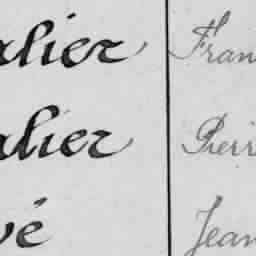 alier Fran
alier Pierr
vé Jean